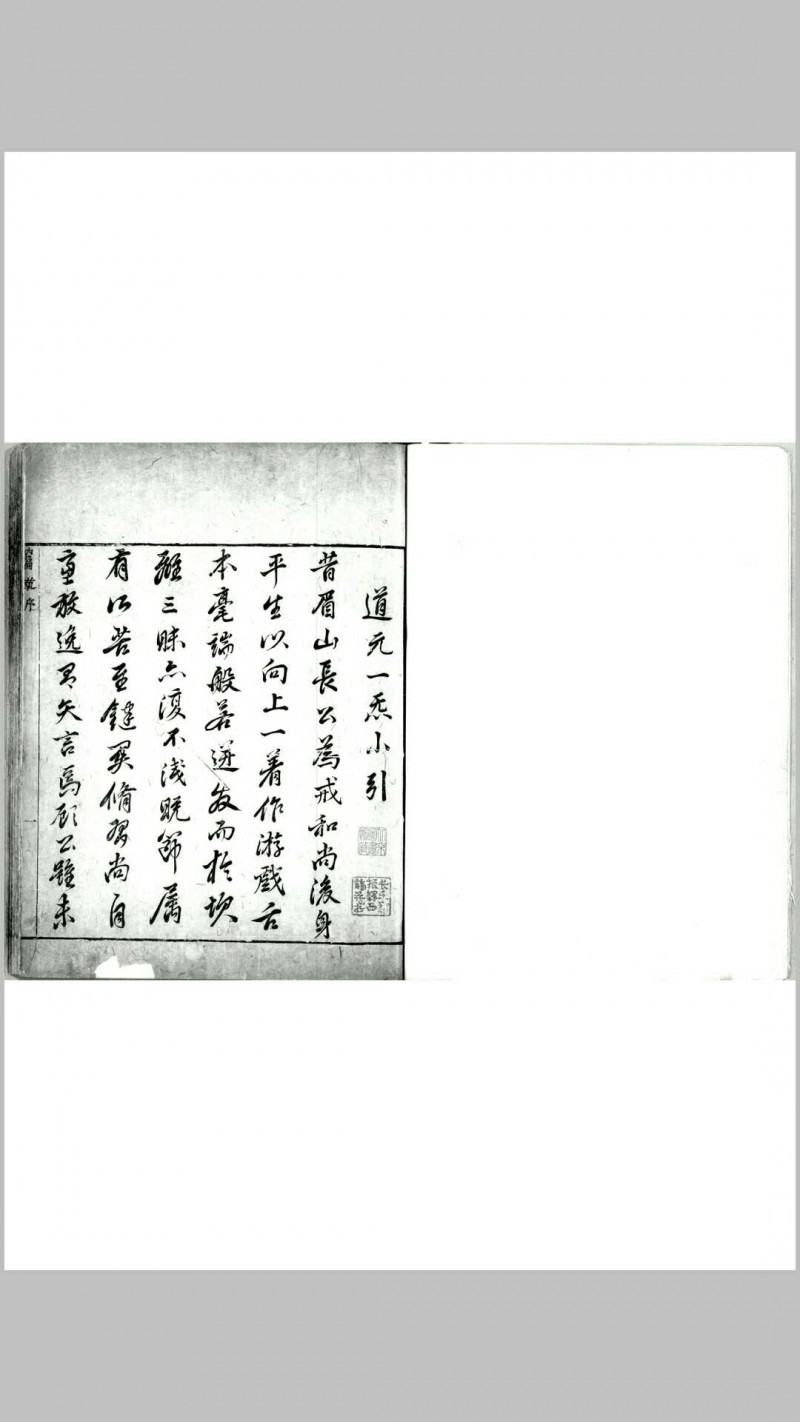 道元一炁小引
昔眉山長公為戒和尚後身
平生以向上一着作游戲方
本毫端般若迸发而於坎
離三昧亦復不淺既
有所苦至鍵關脩習尚自
放逸矢言焉顧公雖未
序
一